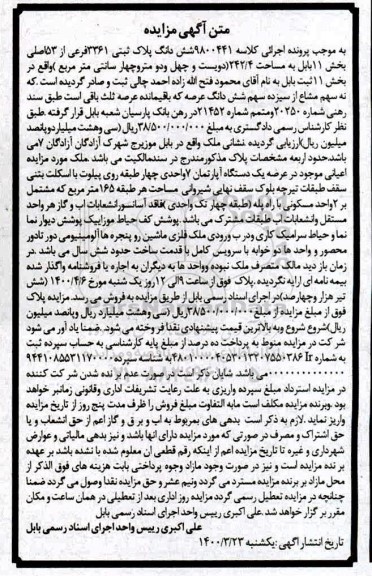 متن آگهی مزایده
به موجب پرونده اجرائی کلاسه ۹۸۰۰۴۴۱شش دانگ پلاک ثبتی ۳۳۶۱فرعی از ۵۳اصلی
بخش ۱۱بابل به مساحت ۲۴۲/۴(دویست و چهل ودو متروچهار سانتی متر مربع )واقع در
بخش ۱۱ثبت بابل به نام آقای محمود فتح الله زاده احمد جالی ثبت و صادر گردیده است .که
نه سهم مشاع از سیزده سهم شش دانگ عرصه که باقیمانده عرصه ثلث باقی است طبق سند
رهنی شماره ۲۰۲۵۰ومتمم شماره ۲۱۴۵۲در رهن بانک پارسیان شعبه بابل قرار گرفته .طبق
نظر کارشناس رسمی دادگستری به مبلغ ۳۸/۵۰۰/۰۰۰/۰۰۰ریال(سی وهشت میلیاردوپانصد
میلیون ریال)ارزیابی گردیده .نشانی ملک واقع در بابل موزیرج شهرک آزادگان آزادگان ۷می
باشد.حدود اربعه مشخصات پلاک مذکورمندرج در سندمالکیت می باشد .ملک مورد مزایده
اعیانی موجود در عرصه یک دستگاه آپارتمان ۷واحدی چهار طبقه روی پیلوت با اسکلت بتنی
سقف طبقات تیرچه بلوک سقف نهایی شیروانی مساحت هر طبقه ۱۶۵متر مربع که مشتمل
بر ۲واحد مسکونی با راه پله (طبقه چهار تک واحدی )فاقد آسانسورانشعابات اب و گاز هر واحد
مستقل وانشعابات اب طبقات مشترک می باشد .پوشش کف حیاط موزاییک پوشش دیوار نما
نما و حیاط سرامیک کاری ودر ب ورودی ملک فلزی ماشین رو پنجره ها آلومینیومی دور تادور
محصور و واحد ها دو خوابه با سرویس کامل با قدمت ساخت حدود شش سال می باشد .در
زمان باز دید مالک متصرف ملک نبوده وواحد ها به دیگران به اجاره یا فروشنامه واگذار شده
بیمه نامه ای ارایه نگردیده .پلاک فوق از ساعت ۹الی ۱۲روز یک شنبه مورخ ۱۴۰۰/۴/۶ (شش
تیر هزار وچهارصد)در اجرای اسناد رسمی بابل از طریق مزایده به فروش می رسد .مزایده پلاک
فوق از مبلغ مزایده از مبلغ ۳۸۵۰۰/۰۰۰/۰۰۰ریال (سی وهشت میلیارد ریال وپانصد میلیون
ریال)شروع شروع وبه بالاترین قیمت پیشنهادی نقدا فر وخته می شود .ضمنا یاد آور می شود
شر کت در مزایده منوط به پرداخت ده درصد از مبلغ پایه کارشناسی به حساب سپرده ثبت
در مزایده استرداد مبلغ سپرده واریزی به علت رعایت تشریفات اداری وقانونی زمانبر خواهد
بود .وبرنده مزایده مکلف است مابه التفاوت مبلغ فروش را ظرف مدت پنج روز از تاریخ مزایده
واریز نماید .لازم به ذکر است بدهی های بمربوط به اب و بر ق و گاز اعم از حق انشعاب و یا
حق اشتراک و مصرف در صورتی که مورد مزایده دارای انها باشد و نیز بدهی مالیاتی و عوارض
شهرداری و غیره تا تاریخ مزایده اعم از اینکه رقم قطعی ان معلوم شده یا نشده باشد بر عهده
بر نده مزایده است و نیز در صورت وجود مازاد وجوه پرداختی بابت هزینه های فوق الذکر از
محل مازاد بر برنده مزایده مسترد می گردد ونیم عشر و حق مزایده نقدا وصول می گردد .ضمنا
چنانچه در مزایده تعطیل رسمی گردد مزایده روز اداری بعد از تعطیلی در همان ساعت و مکان
مقرر بر گزار خواهد شد .علی اکبری رییس واحد اجرای اسناد رسمی بابل
علی اکبری رییس واحد اجرای اسناد رسمی بابل
تاریخ انتشار اگهی :یکشنبه ۱۴۰۰/۳/۲۳